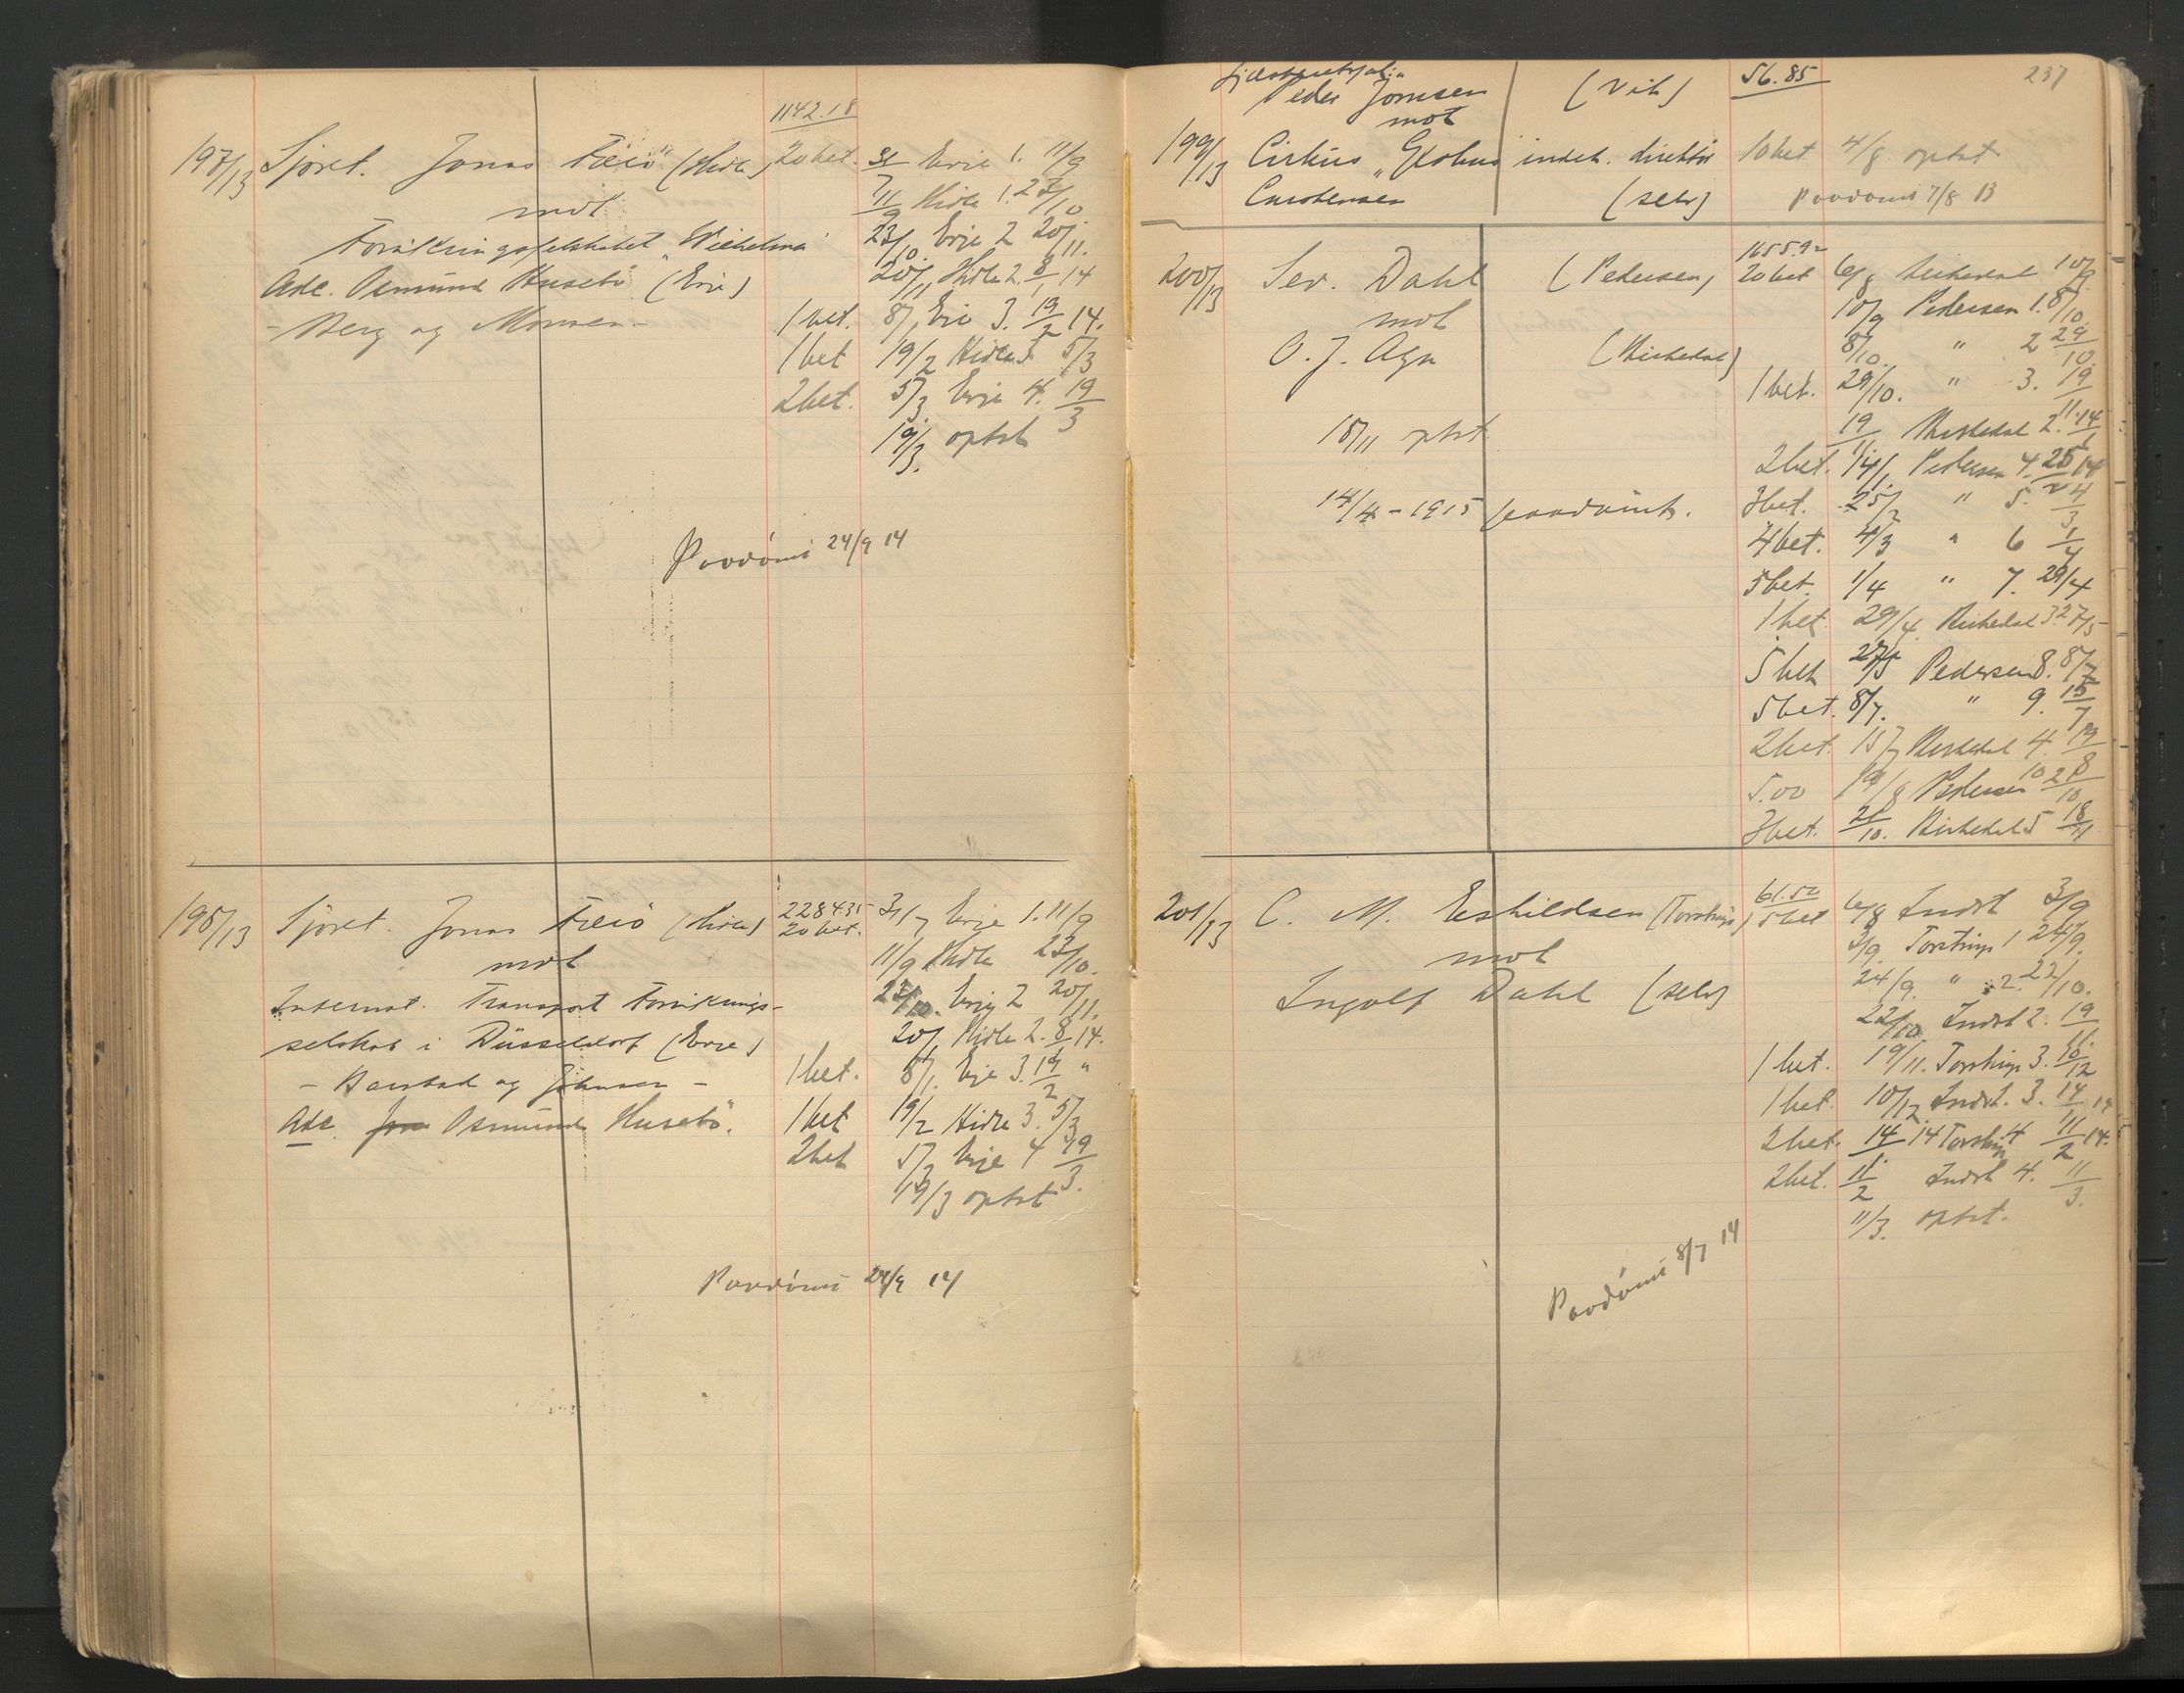 1142.18
197/13 Sjöret. Jonas Fieiö (Hidle) 20 bet. 31/7 Erie 1. 11/9
mot 11/9 Hidle 1. 23/10
Forsikringsselskabet „Wilhelma" 23/10. Erje 2 20/11.
Adc. Osmund Husebö (Erie) 20/11 Hidle 2. 8/1 14
- Berg og Monsen - 1 bet. 8/1 Erie 3. 19/2 14.
1 bet 19/2 Hidle 3 5/3
2 bet. 5/3 Erje 4. 19/3
19/3. optat
Paadömt 24/9 14
198/13 Sjöret. Jonas Fieiö (Hidle) 2284.35
20 bet. 31/7 Erje 1. 11/9
mot 11/9 Hidle 23/10.
Internat. Transport Forsikrings- 23/10. Erje 2 20/11.
selskab i Düsseldorf (Erie) 20/11 Hidle 2. 8/1 14.
- Barstad og Johnsen - 1 bet. 8/1. Erje 3. 19/2 "
Adc. Osmund Husebö. 1 bet 19/2 Hidle 3. 5/3
2 bet 5/3 Erje 4 19/3.
19/3 optat
Paadömt 24/9 14
237
Peder Jonsen (Vik) 56.85
mot
199/13 Cirkus „Globus" indeh. direktör 10 bet 4/8 optat
Carstensen (selv) Paadömt 7/8 13
1655.92
200/13 Sev. Dahl (Pedersen) 20 bet 6/8 Birkedal 10/9.
mot 10/9 Pedersen 1. 8/10
O. J. Aga (Birkedal) 8/10. " 2 29/10.
1 bet. 29/10. " 3. 19/11.
18/11 optat 19/11 Birkedal 2. 14/1
2 bet. 14/1. Pedersen 4. 25/2 14
14/4 - 1915 paadömt. 3 bet. 25/2 " 5. 4/3
4 bet. 4/3 " 6 1/4
5 bet. 1/4 " 7. 29/4
1 bet. 29/4. Birkedal 3. 27/5
5 bet 27/5 Pedersen 8. 8/7
5 bet. 8/7. " 9. 15/7
2 bet. 15/7 Birkedal 4. 19/8
5.00 19/8 Pedersen 10 21/10
3 bet. 21/10. Birkedal 5 18/11
61.50
201/13 C. M. Eskildsen (Torstrup) 5 bet 6/8 Indst 3/9
mot 3/9. Torstrup 1 24/9.
Ingolf Dahl (selv) 24/9. " 2. 22/10.
22/10 Indst 2. 19/11.
1 bet. 19/11. Torstrup 3. 10/12
1 bet. 10/12 Indst. 3. 14/1 14
2 bet. 14/1. 14 Torstrup 4 11/2 14.
2 bet. 11/2 Indst 4. 11/3.
11/3. optat.
Paadömt 8/7 14